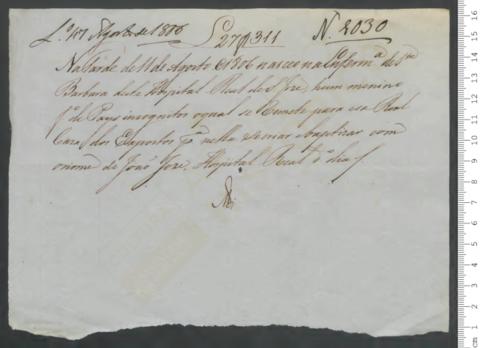 17 Agosto de 1806 L 27 f 311 N. 2030
Na tarde de 11 de Agosto d 1806 nasceu na Enferm.ª de S.ta
Barbara deste Hospital Real de S. Joze, hum menino
f.º de Pays incognitos o qual se Remete para essa Real
Caza dos Expostos p.ª nella se criar e baptizar com
o nome de João Joze. Hospital Real